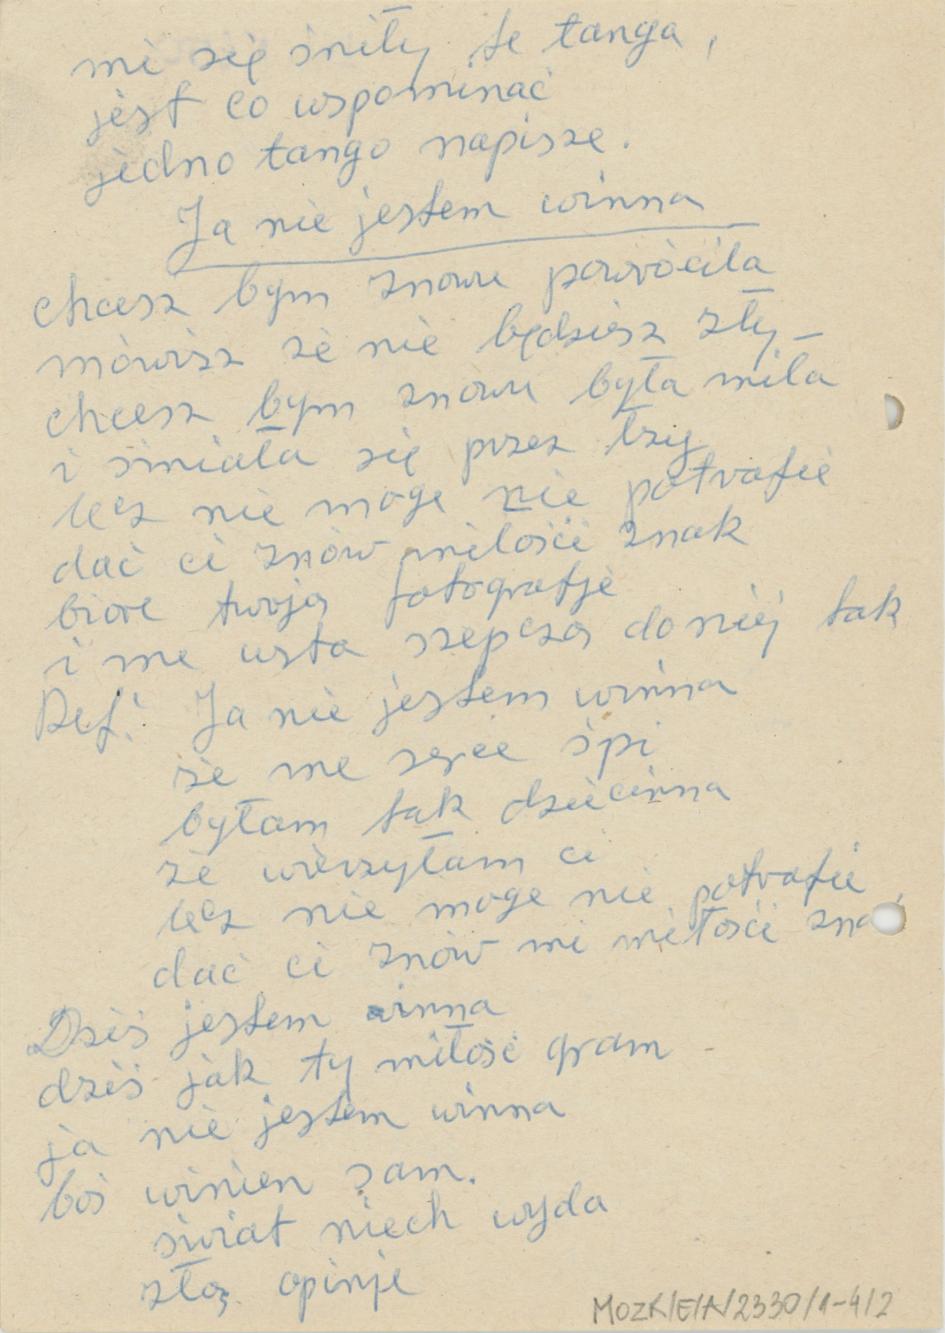 mi się śniły te tanga,
jest co wspominać
jedno tango napisze.
Ja nie jestem winna
chcesz bym znowu powróciła
mówisz że nie będziesz zły –
chcesz bym znowu była miła
i śmiała się przez łzy
lecz nie moge nie potrafie
dać ci znów miłości znak
biore twoją fotografje
i me usta szepczą do niej tak
Ref: Ja nie jestem winna
że me serce śpi
byłam tak dziecinna
że wierzyłam ci
lecz nie moge nie potrafie
dać ci znów mi miłości
Dziś jestem winna
dziś jak ty miłość gram –
ja nie jestem winna
boś winien sam.
świat niech wyda
złą opinje
MOZK/E/A/2330/1-4/2